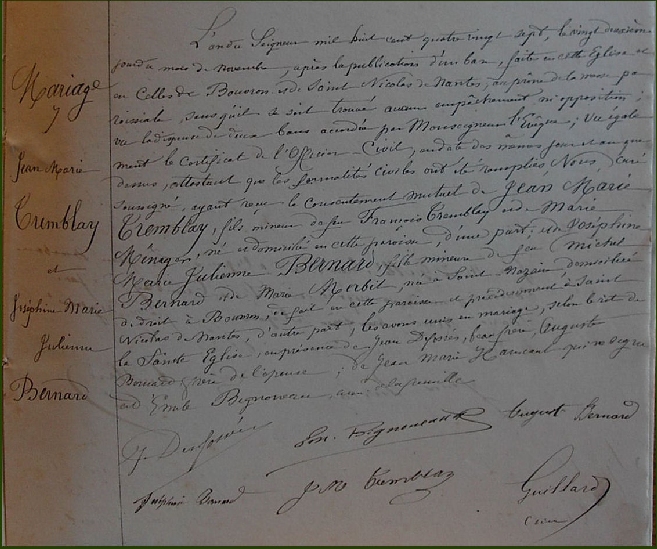 Mariage
7
Jean Marie
Tremblay
et
Joséphine Marie
Julienne
Bernard
L'an du Seigneur mil huit cent quatre vingt sept, le vingt deuxième
jour du mois de novembre, après la publication d'un ban, faite en cette Eglise et
en celles de Bouvron et de Saint Nicolas de Nantes, au prône de la messe pa
roissiale, sans qu'il se soit trouvé aucun empêchement ni opposition ;
vu la dispense de deux bans accordée par Monseigneur l'Evêque ; Vu égale
ment le Certificat de l'Officier Civil, en date des mêmes jour et an que
dessus, attestant que les formalités civiles ont été remplies Nous, curé
soussigné, ayant reçu le consentement mutuel de Jean Marie
Tremblay, fils mineur de feu François Tremblay et de Marie
Ménager, né et domicilié en cette paroisse, d'une part ; et de Joséphine
Marie Julienne Bernard, fille mineure de feu Michel
Bernard et de Marie Morbit, née à Saint Nazaire domiciliée
de droit à Bouvron, de fait en cette paroisse et précédemment à Saint
Nicolas de Nantes, d'autre part, les avons unis en mariage, selon le rite de
la Sainte Eglise, en présence de Jean beau frère, Auguste
Bernard, frère de l'épouse ; de Jean Marie qui ne signe
et Emile Bignoneau,
Bignoneau August Bernard
Joséphine Bernard J M Tremblay Guillard
curé